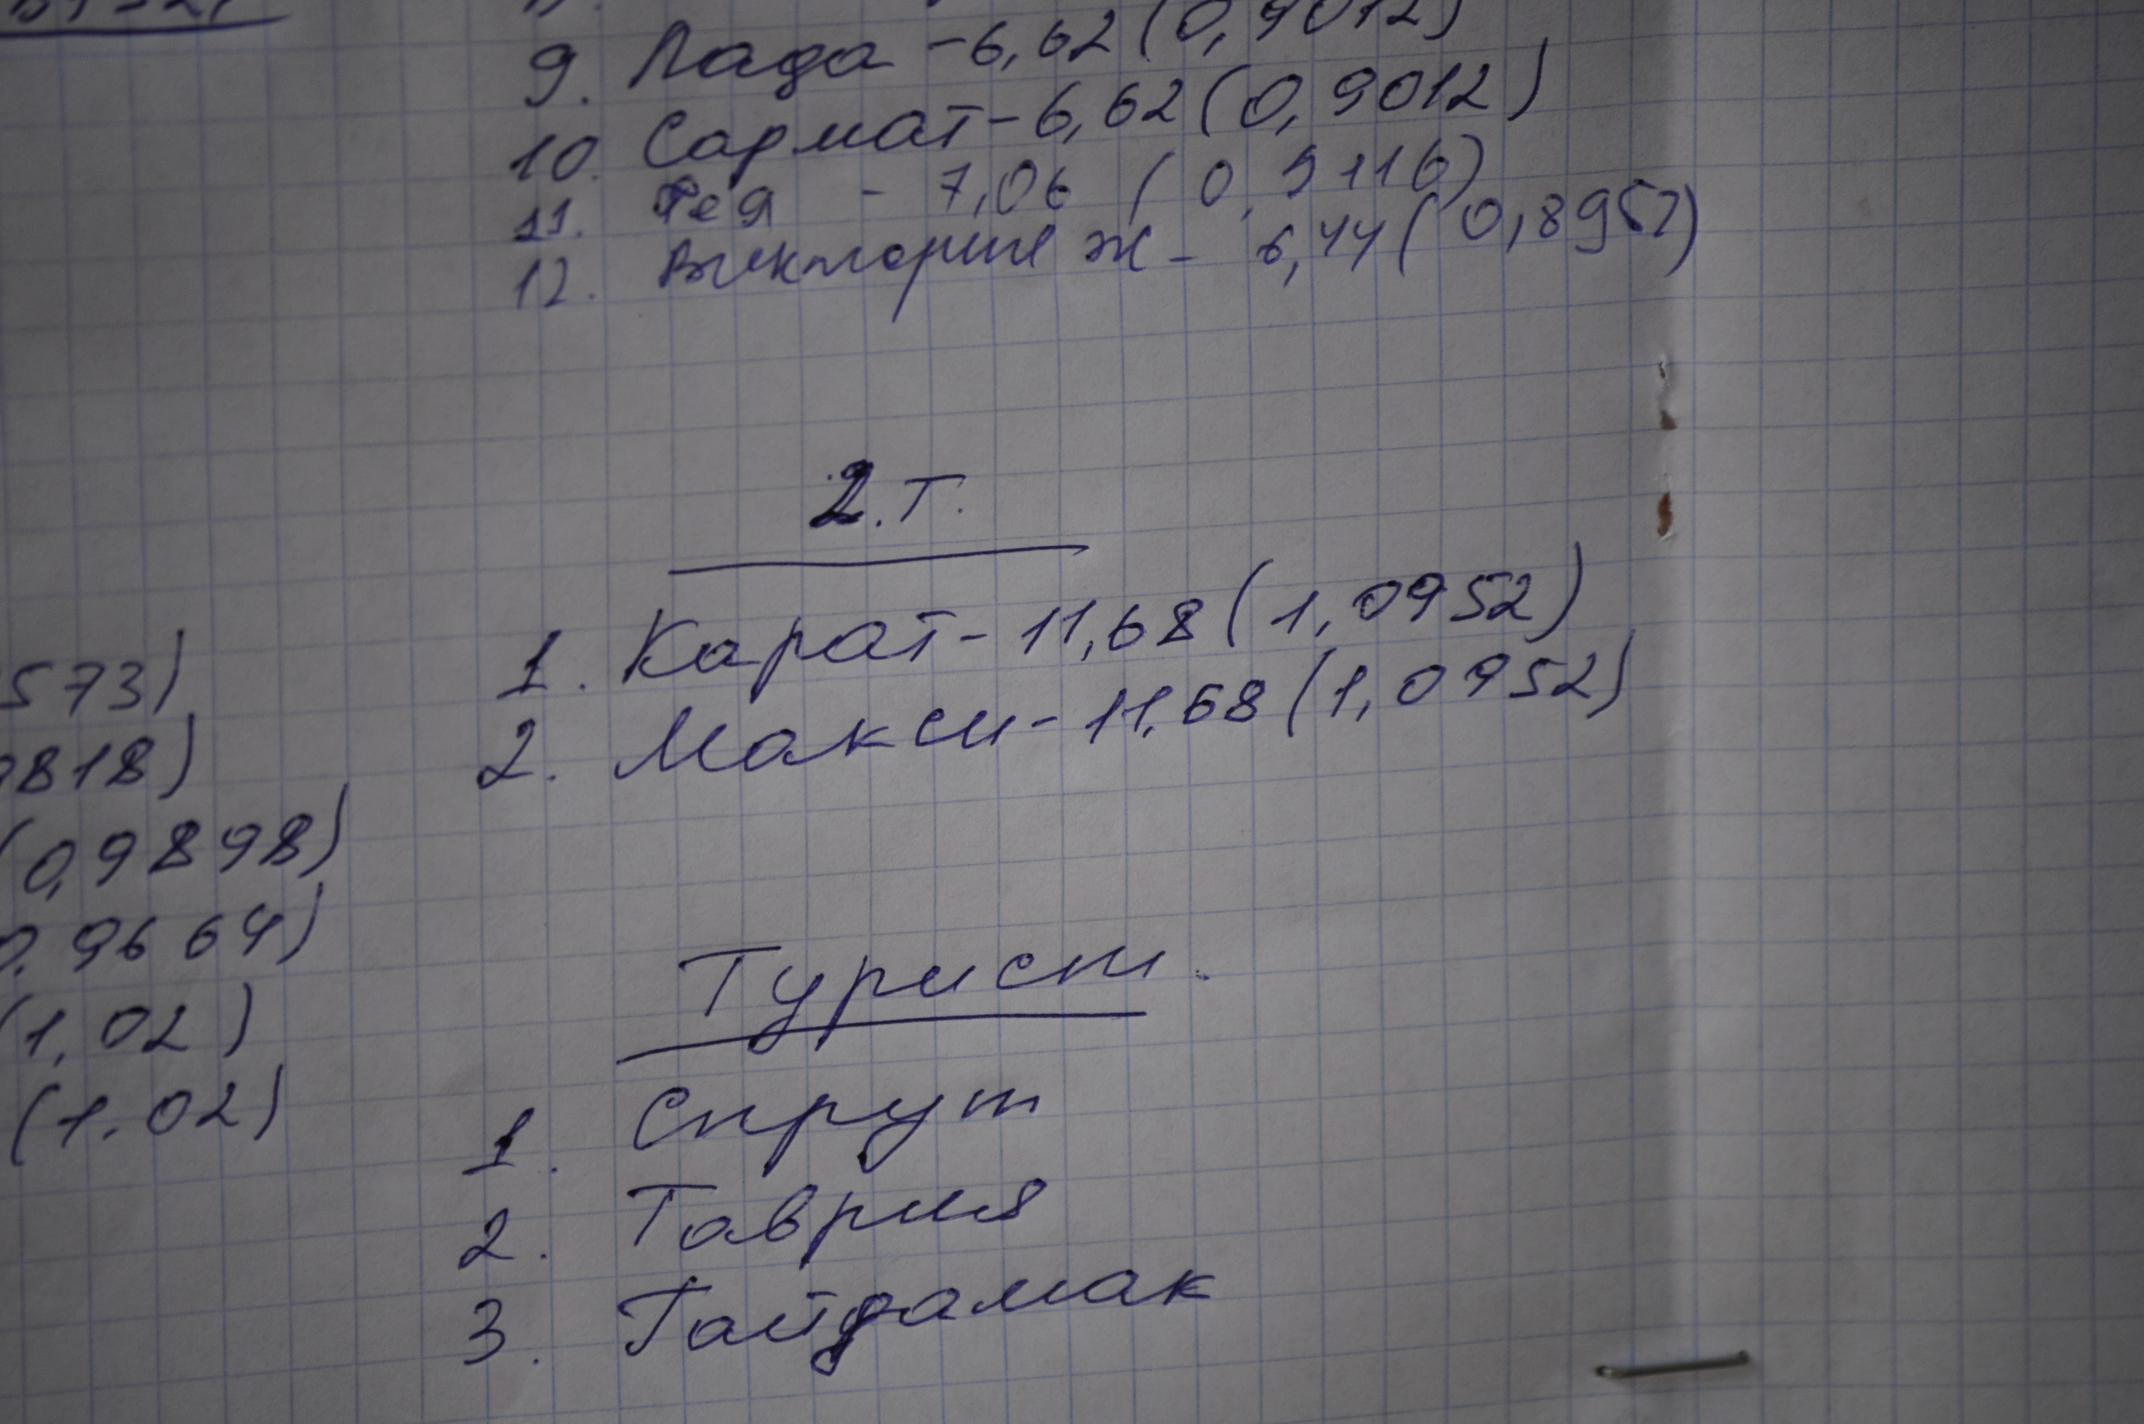 9. Лада - 6,62 (0,9012)
10. Сармат - 6,62 (0,9012)
11. Фея - 7,06 (0,9116)
12. Виктория Ж - 6,44 (0,8957)
2.Т.
1. Карат - 11,68 (1,0952)
2. Макси - 11,68 (1,0952)
Турист.
1. Спрут
2. Таврия
3. Гайдамак
573)
818)
(0,9898)
0,9664)
(1,02)
(1.02)